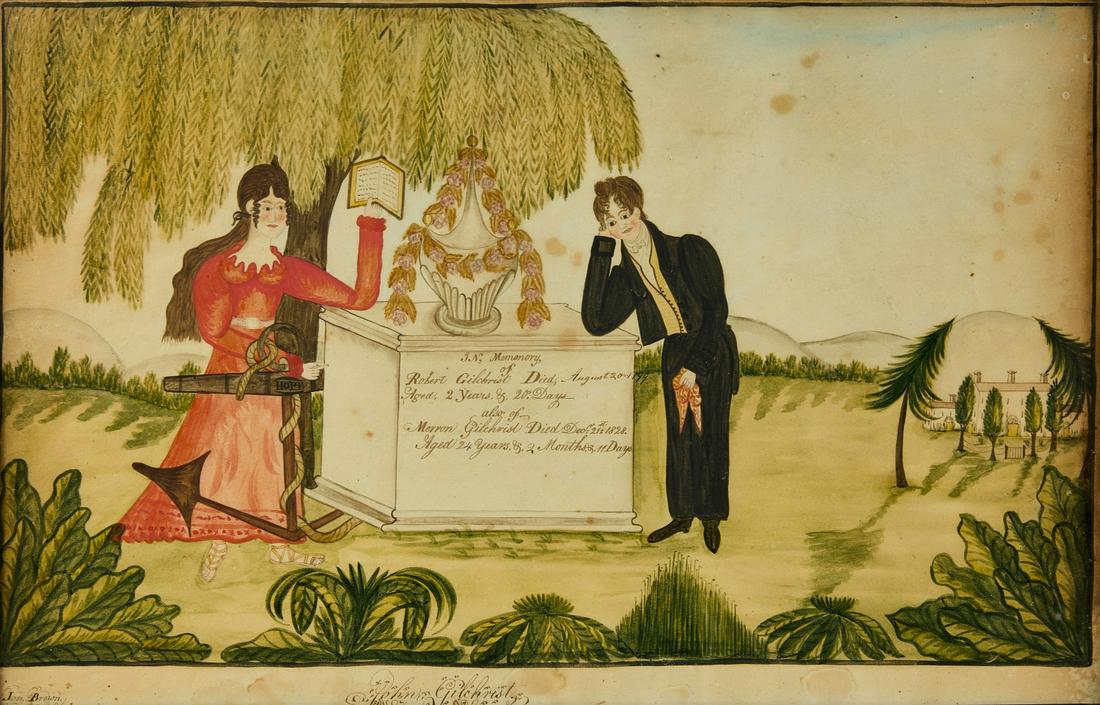 HOPE
IN, Memonory,
of
Robert Gilchrist Died, August 20th 1797
Aged, 2 Years, & 20, Days
also of
Merron Gilchrist Died Decr. 21st 1828.
Aged 24 Years, &, 2 Months, &, 11 Days
Jon. Brown.
John Gilchrist